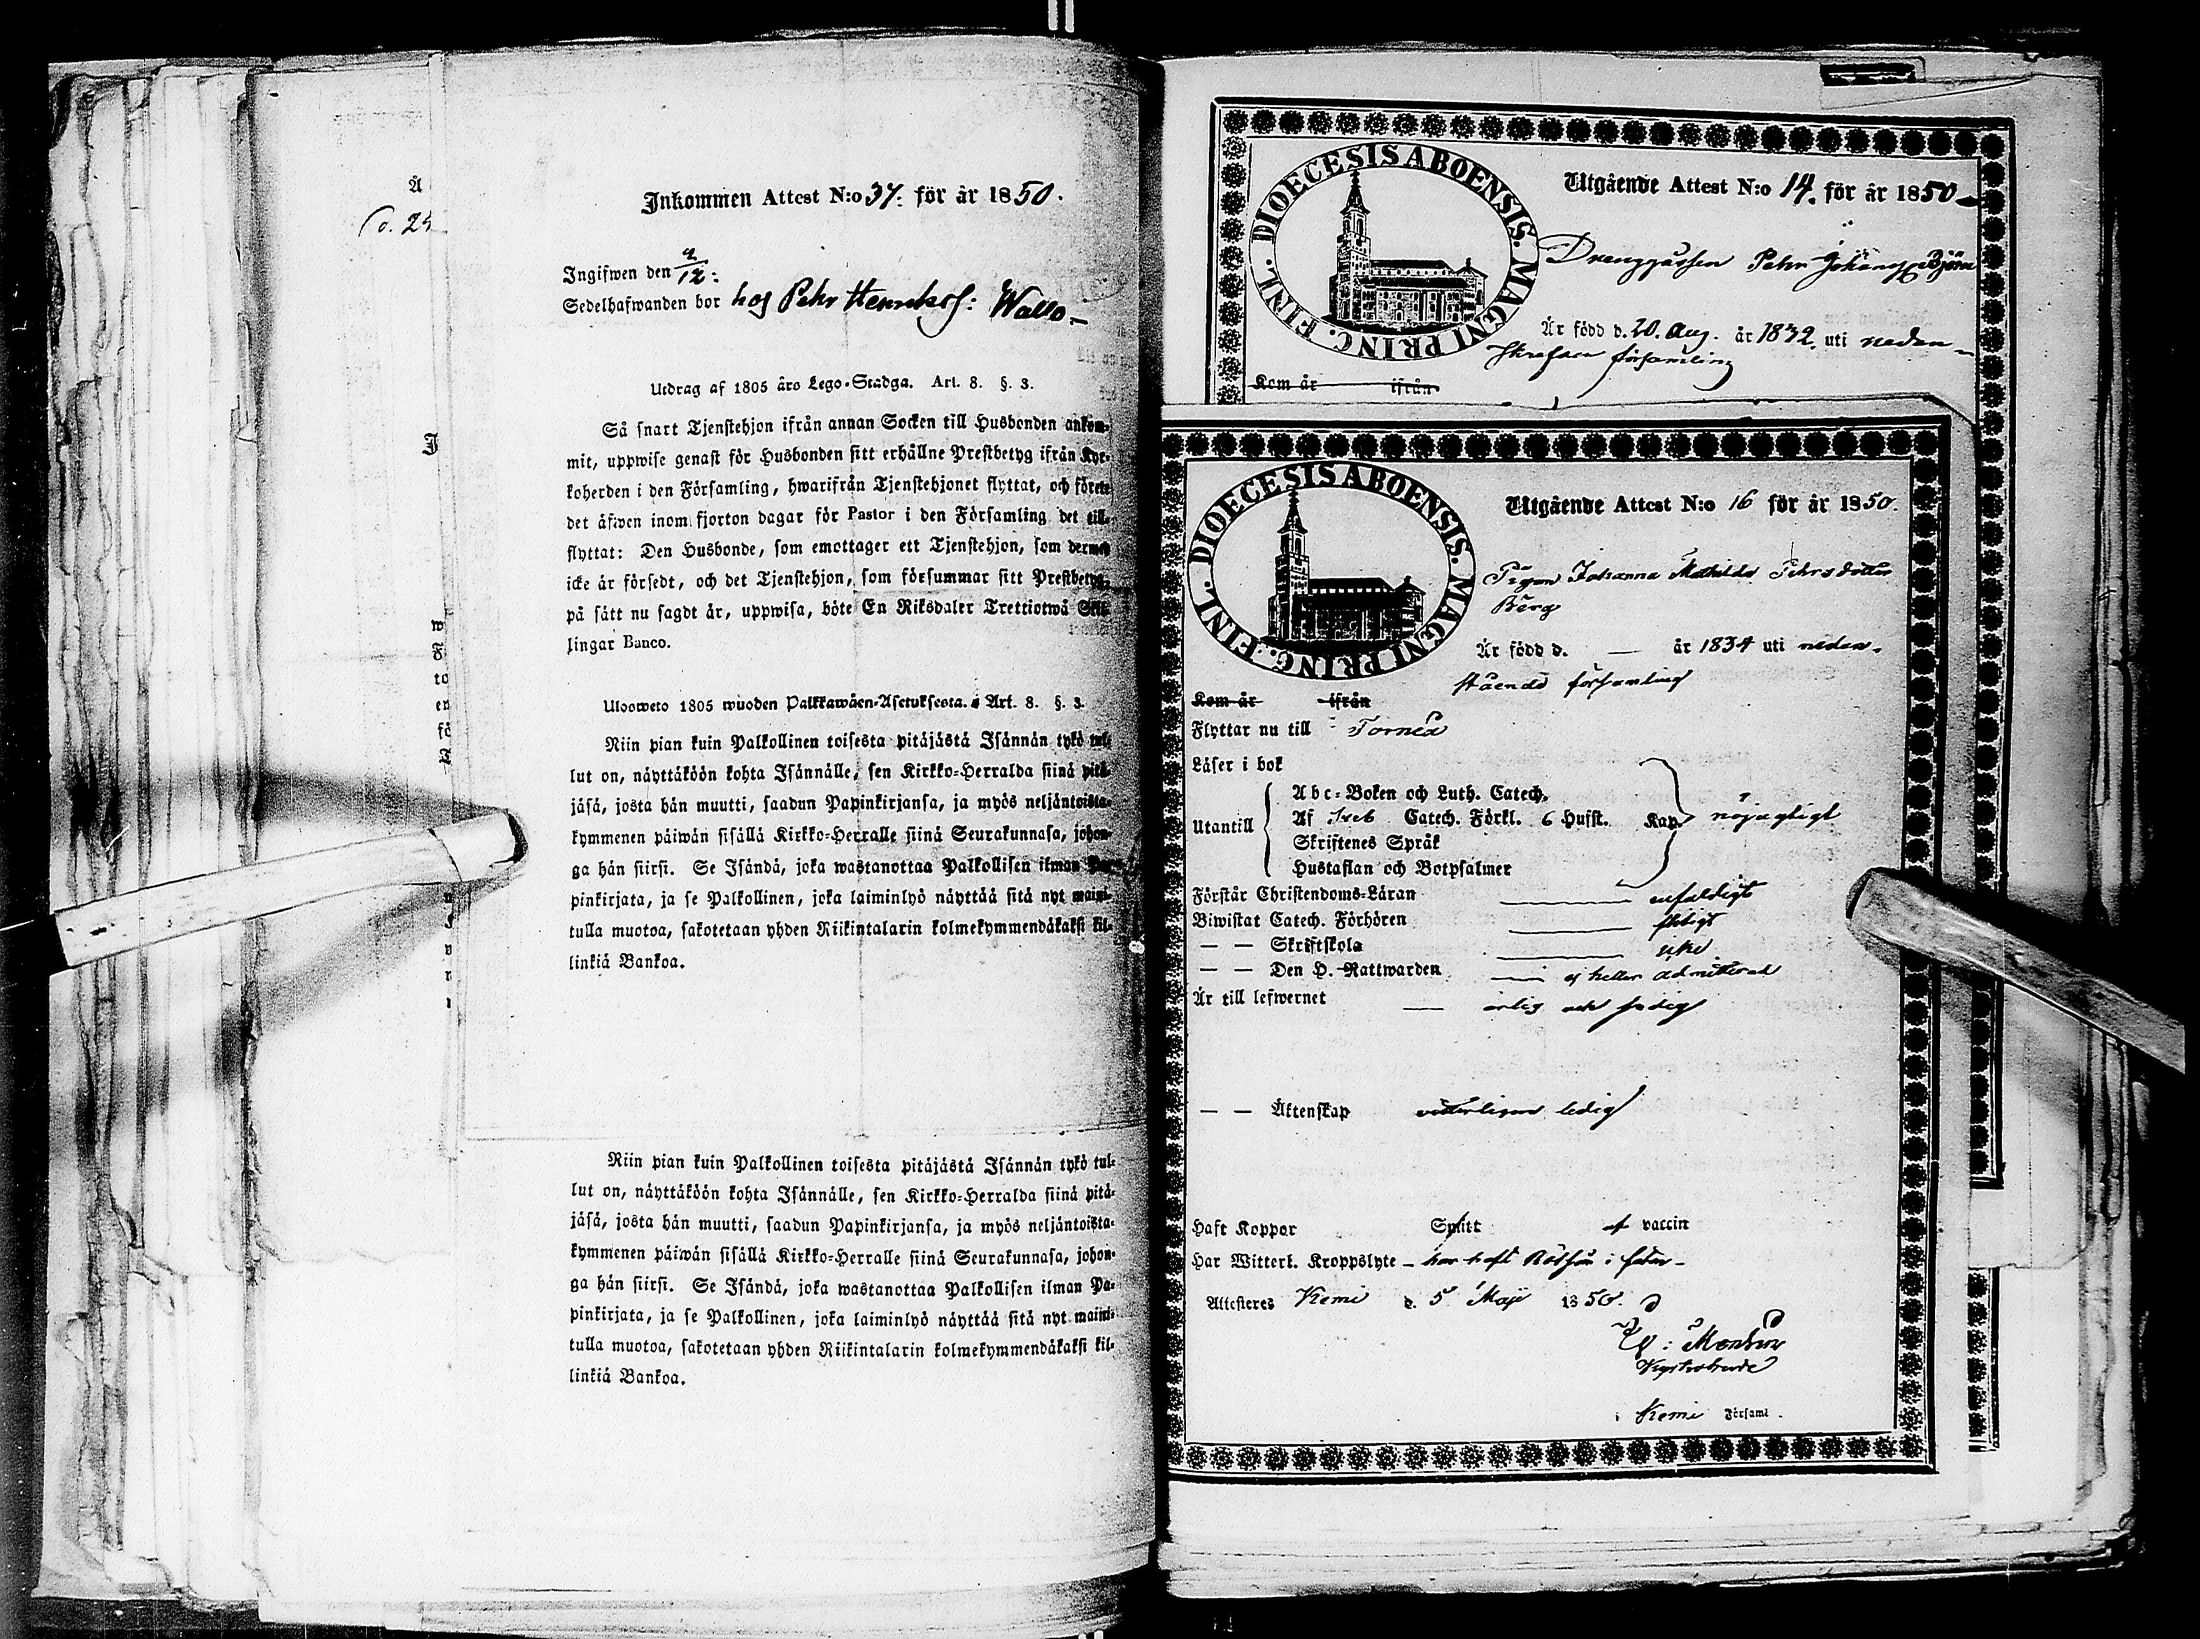 Å
d. 25
Inkommen Attest N:o 37. för år 1850.
Ingifwen den 2/12:
Sedelhafwanden bor hos Pehr Wallo.
Utdrag af 1805 års Lego-Stadga. Art. 8. §. 3.
Så snart Tjenstehjon ifrån annan Socken till Husbonden ankom-
mit, uppwise genast för Husbonden sitt erhållne Prestbetyg ifrån Kyr-
koherden i den Församling, hwarifrån Tjenstehjonet flyttat, och förete
det äfwen inom fjorton dagar för Pastor i den Församling det till-
flyttat: Den Husbonde, som emottager ett Tjenstehjon, som dermed
icke är försedt, och det Tjenstehjon, som försummar sitt Prestbetyg,
på sätt nu sagdt är, uppwisa, böte En Riksdaler Trettiotwå Skil-
lingar Banco.
Ulosweto 1805 wuoden Palkkawäen-Asetuksesta. Art. 8. §. 3.
Niin pian kuin Palkollinen toisesta pitäjästä Isännän tykö tul-
lut on, näyttäköön kohta Isännälle, sen Kirkko-Herralda siinä pitä-
jäsä, josta hän muutti, saadun Papinkirjansa, ja myös neljäntoista-
kymmenen päiwän sisällä Kirkko-Herralle siinä Seurakunnasa, johon-
ga hän siirsi. Se Isändä, joka wastanottaa Palkollisen ilman Pa-
pinkirjata, ja se Palkollinen, joka laiminlyö näyttää sitä nyt maini-
tulla muotoa, sakotetaan yhden Riikintalarin kolmekymmendäkaksi kil-
linkiä Bankoa.
Niin pian kuin Palkollinen toisesta pitäjästä Isännän tykö tul-
lut on, näyttäköön kohta Isännälle, sen Kirkko-Herralda siinä pitä-
jäsä, josta hän muutti, saadun Papinkirjansa, ja myös neljäntoista-
kymmenen päiwän sisällä Kirkko-Herralle siinä Seurakunnasa, johon-
ga hän siirsi. Se Isändä, joka wastanottaa Palkollisen ilman Pa-
pinkirjata, ja se Palkollinen, joka laiminlyö näyttää sitä nyt maini-
tulla muotoa, sakotetaan yhden Riikintalarin kolmekymmendäkaksi kil-
linkiä Bankoa.
DIOECESIS ABOENSIS. MAGNI PRINC. FINL.
Utgående Attest N:o 14. för år 1850
Drenggåssen Pehr Johansson Björn
Är född d. 20. Aug. år 1832. uti nedan-
skrefne församling
Kom år ifrån
DIOECESIS ABOENSIS. MAGNI PRINC. FINL.
Utgående Attest N:o 16 för år 1850.
Pigan Johanna Mathilda Pehrsdotter
Berg
Är född d. — år 1834 uti nedan-
stående församling
Kom år ifrån
Flyttar nu till Torneå
Läser i bok
Utantill
Abc-Boken och Luth. Catech.
Af Sveb Catech. Förkl. 6 Hufst. Kap. nöjagtigt
Skriftenes Språk
Hustaflan och Botpsalmer
Förstår Christendoms-Läran enfaldigt
Biwistat Catech. Förhören flitigt
— — Skriftskola icke
— — Den H. Nattwarden ej heller admitterad
Är till lefwernet — ärlig och sedig
— — Äktenskap veterligen ledig
Haft Koppor Splitt af vaccin
Har Witterl. Kroppslyte — har haft i
Attesteres Kemi d. 5 Maji 1850.
Kemi Församl.